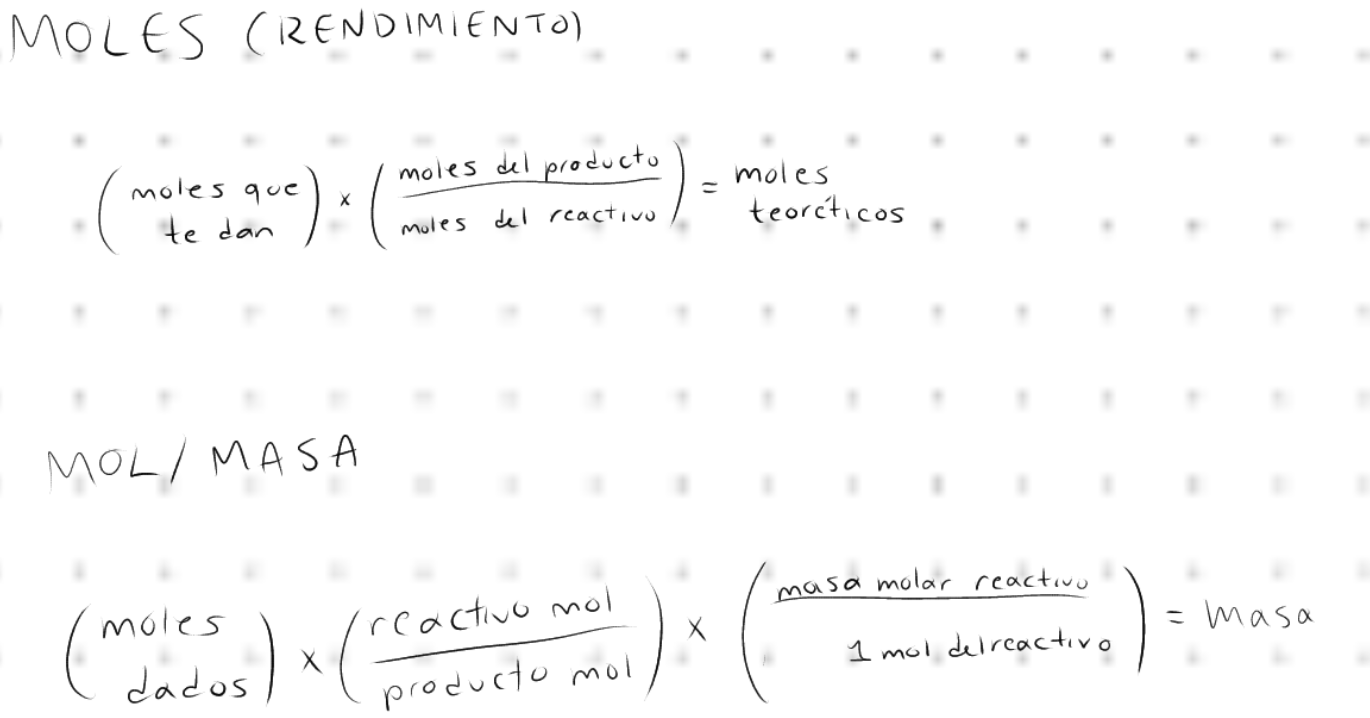 MOLES (RENDIMIENTO)
(moles que te dan) x (moles del producto / moles del reactivo) = moles teoréticos
MOL/MASA
(moles dados) x (reactivo mol / producto mol) x (masa molar reactivo / 1 mol del reactivo) = masa